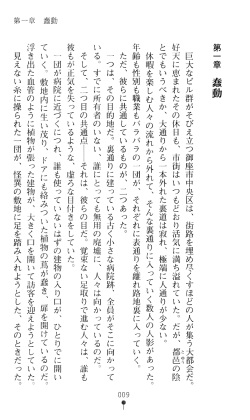 第一章　蠢動
第一章　蠢動
巨大なビル群がそびえ立つ御座市中央区は、街路を埋め尽くすほどの人が集う大都会だ。
好天に恵まれたその休日も、市街はいつもどおり活気に満ち溢れていた。だが、都邑の陰
とでもいうべきか、大通りから一本外れた裏道は寂れ、極端に人通りが少ない。
休暇を楽しむ人々の流れから外れて、そんな裏通りに入っていく数人の人影があった。
年齢も性別も職業もバラバラの一団が、それぞれに表通りを離れ路地裏に入っていく。
ただ、彼らに共通しているものが、二つあった。
一つは、その目的地だ。裏通りに建っている古く小さな病院跡、全員がそこに向かって
いる。すでに所有者のいない、誰にとっても無用の廃墟に、人々は向かっているのだ。
そして、二つ目の共通点――それは、彼らの目だ。覚束ない足取りで進む人々は、誰も
彼もが正気を失っているような、虚ろな目付きをしていた。
一団が病院に近づくにつれ、誰も使っていないはずの建物の入り口が、ひとりでに開い
ていく。敷地内に生い茂り、ドアにも絡みついた植物の蔦が蠢き、扉を開けているのだ。
浮き出た血管のように植物が張った建物が、大きく口を開いて訪客を迎えようとしていた。
見えない糸に操られた一団が、怪異の敷地に足を踏み入れようとした、そのときだった。
009